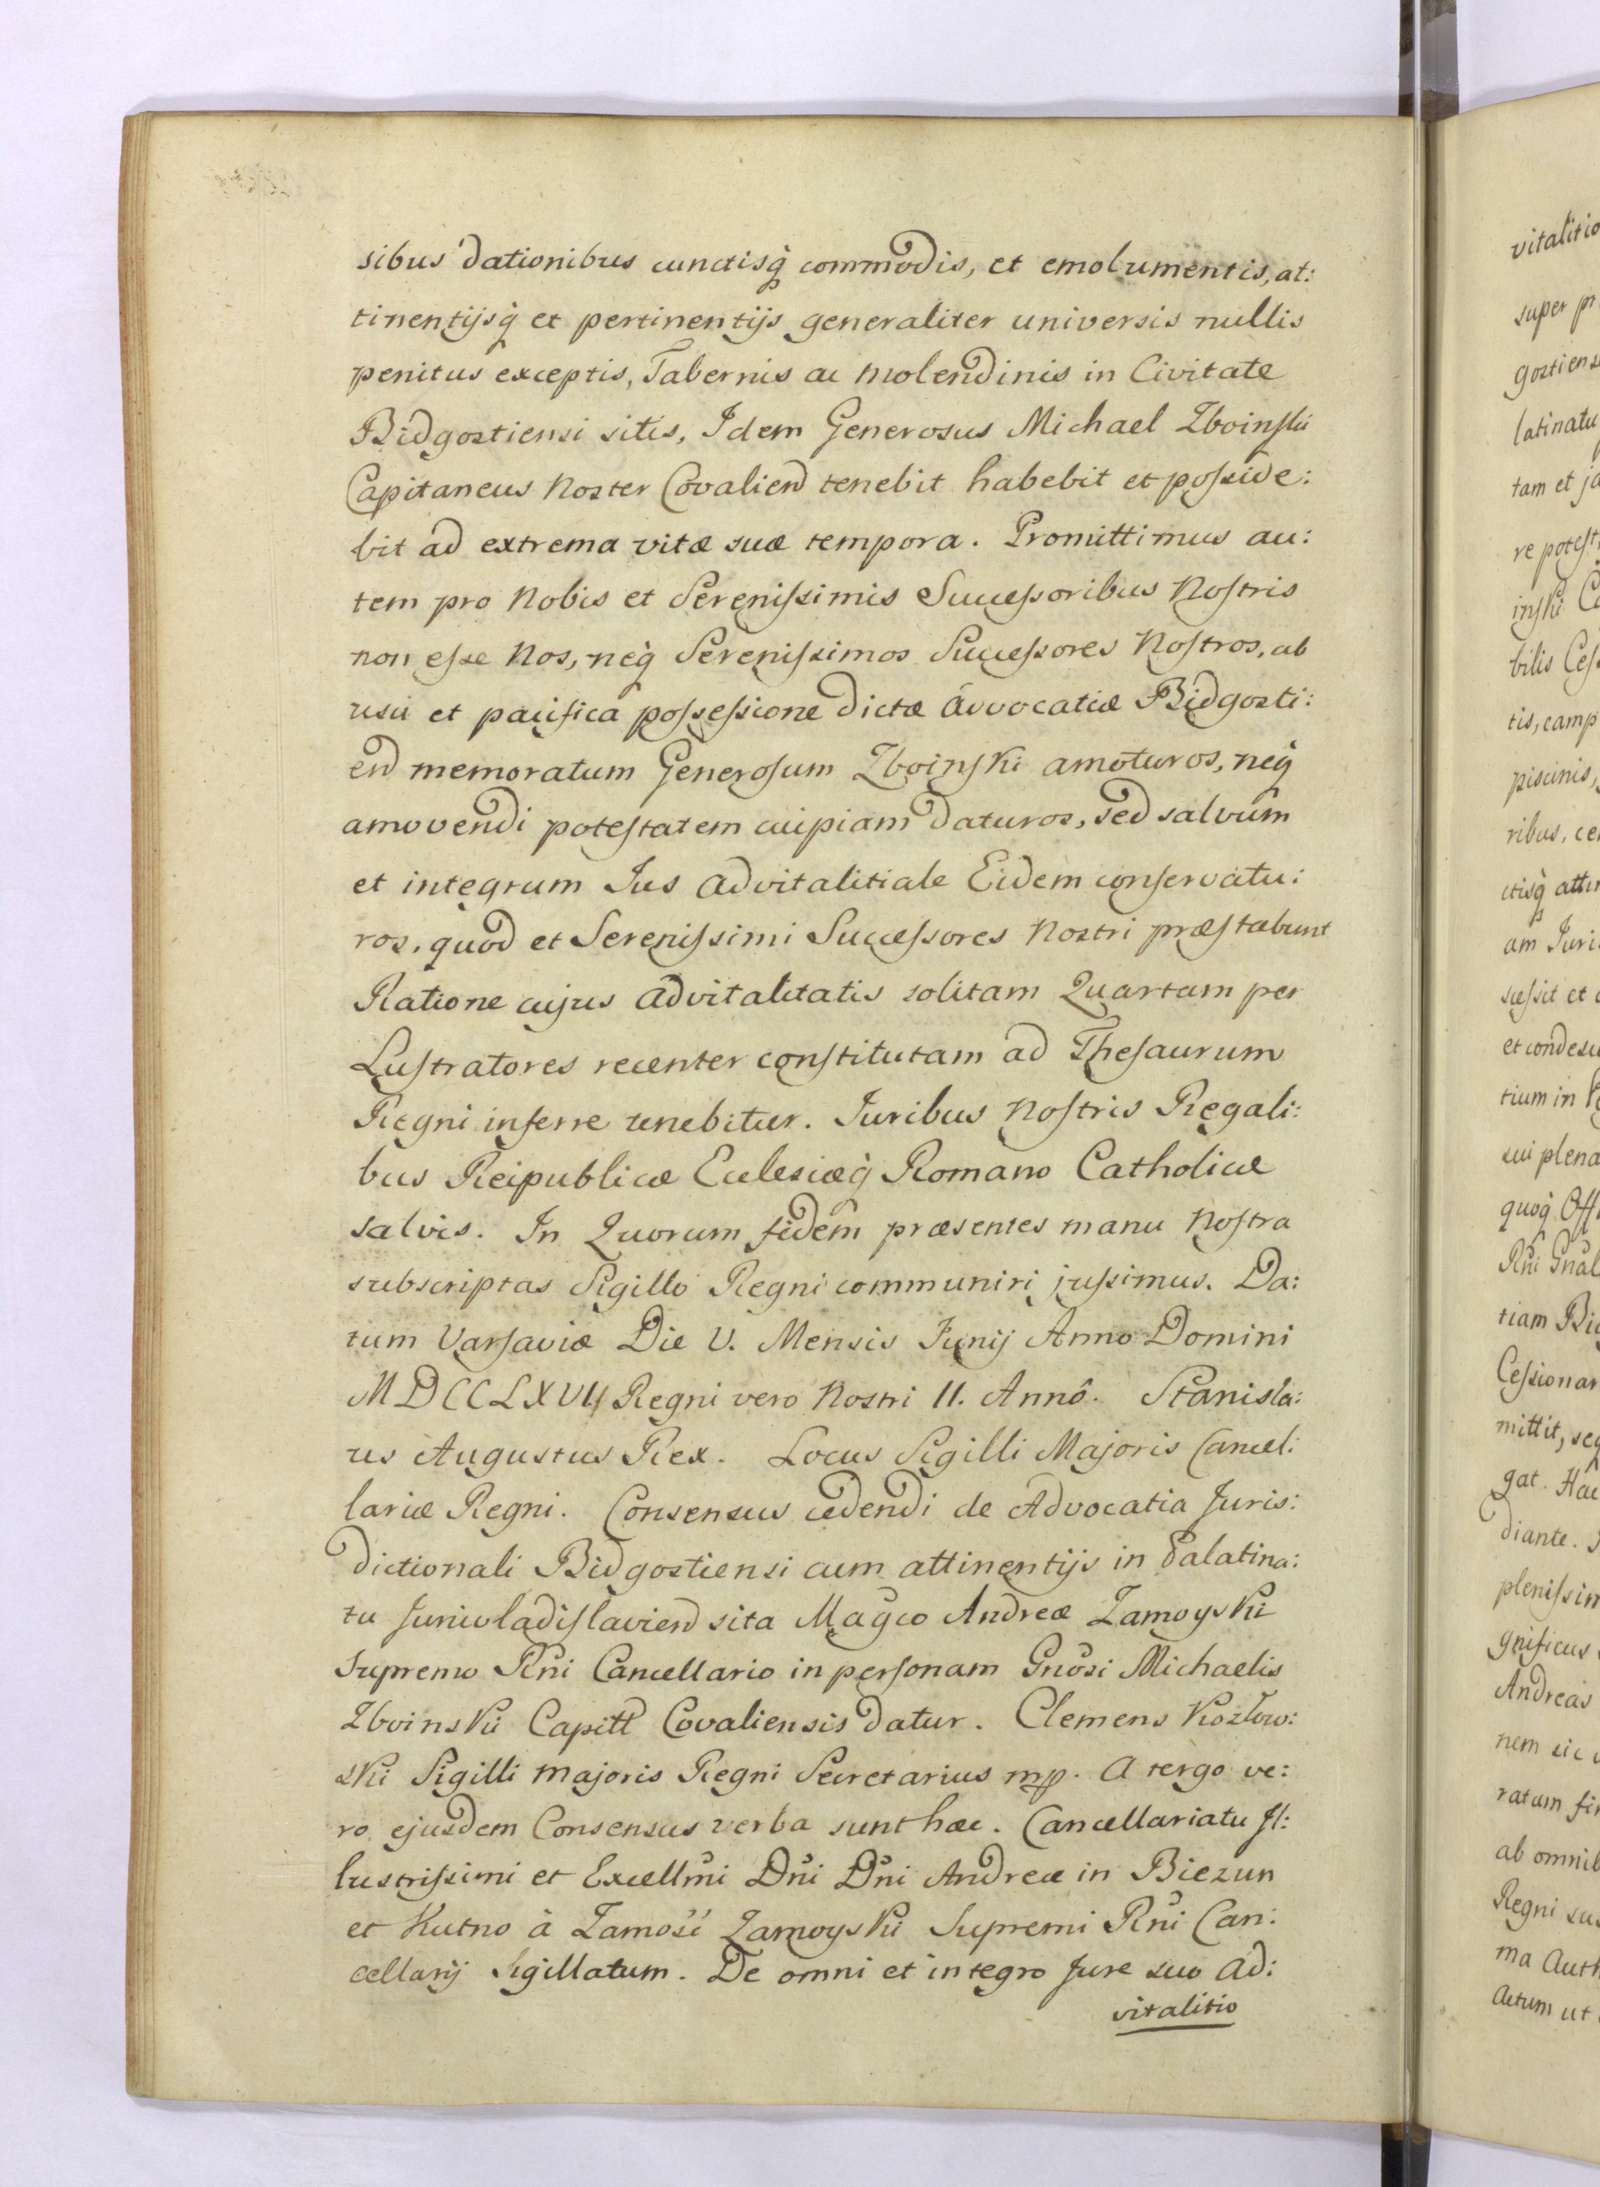 sibus dationibus cunctisq̀ commodis, et emolumentis, at:
tinentijsq̀ et pertinentijs generaliter universis nullis
penitus exceptis, Tabernis ac Molendinis in Civitate
Bidgostiensi sitis, Idem Generosus Michael Zboinski
Capitaneus Noster Covalien̄ tenebit habebit et poſside:
bit ad extrema vitæ suæ tempora. Promittimus au:
tem pro Nobis et Sereniſsimis Succeſsoribus Noſtris
non eſse Nos, neq̀ Sereniſsimos Succeſsores Noſtros, ab
usu et pacifica poſseſsione dictæ Advocatiæ Bidgosti:
en̄ memoratum Generoſum Zboinſki amoturos, neq̀
amovendi poteſtatem cuipiam daturos, sed salvum
et integrum Jus advitalitiale Eidem conſervatu:
ros, quod et Sereniſsimi Succeſsores Nostri præſtabunt
Ratione cujus advitalitatis solitam Quartam per
Luſtratores recenter conſtitutam ad Theſaurum
Regni inferre tenebitur. Juribus Noſtris Regali:
bus Reipublicæ Ecclesiæq̀ Romano Catholicæ
salvis. In Quorum fidem præsentes manu Noſtra
subscriptas Sigillo Regni communiri juſsimus. Da:
tum Varſaviæ Die V. Mensis Junij Anno Domini
MDCCLXVI Regni vero Nostri II. Annô. Stanisla:
us Augustus Rex. Locus Sigilli Majoris Cancel:
lariæ Regni. Consensus cedendi de Advocatia Juris:
dictionali Bidgostiensi cum attinentijs in Palatina:
tu Juniuladiſlavien̄ sita Mag̃co Andreæ Zamoyski
Supremo Rñi Cancellario in perſonam Gnõsi Michaelis
Zboinski Capitt̄ Covaliensis datur. Clemens Kozłow:
ski Sigilli Majoris Regni Secretarius mp. A tergo ve:
ro ejusdem Consensus verba sunt hæc. Cancellariatu Jl:
lustriſsimi et Excellm̃i Dñi Dñi Andreæ in Biezun
et Kutno à Zamość Zamoyski Supremi Rñi Can:
cellarij Sigillatum. De omni et integro Jure suo Ad:
vitalitio
vitalitio
super
latinatu
tam et
re
inſki
bilis
tis, camp
piscinis,
ribus,
am
et
tium in
cui plena
quoq̀
tiam
mittit,
gat.
diante.
pleniſsim
gnificus
Andreas
nem sic
ratum
ab omnib
Regni
ma Auth
Actum ut